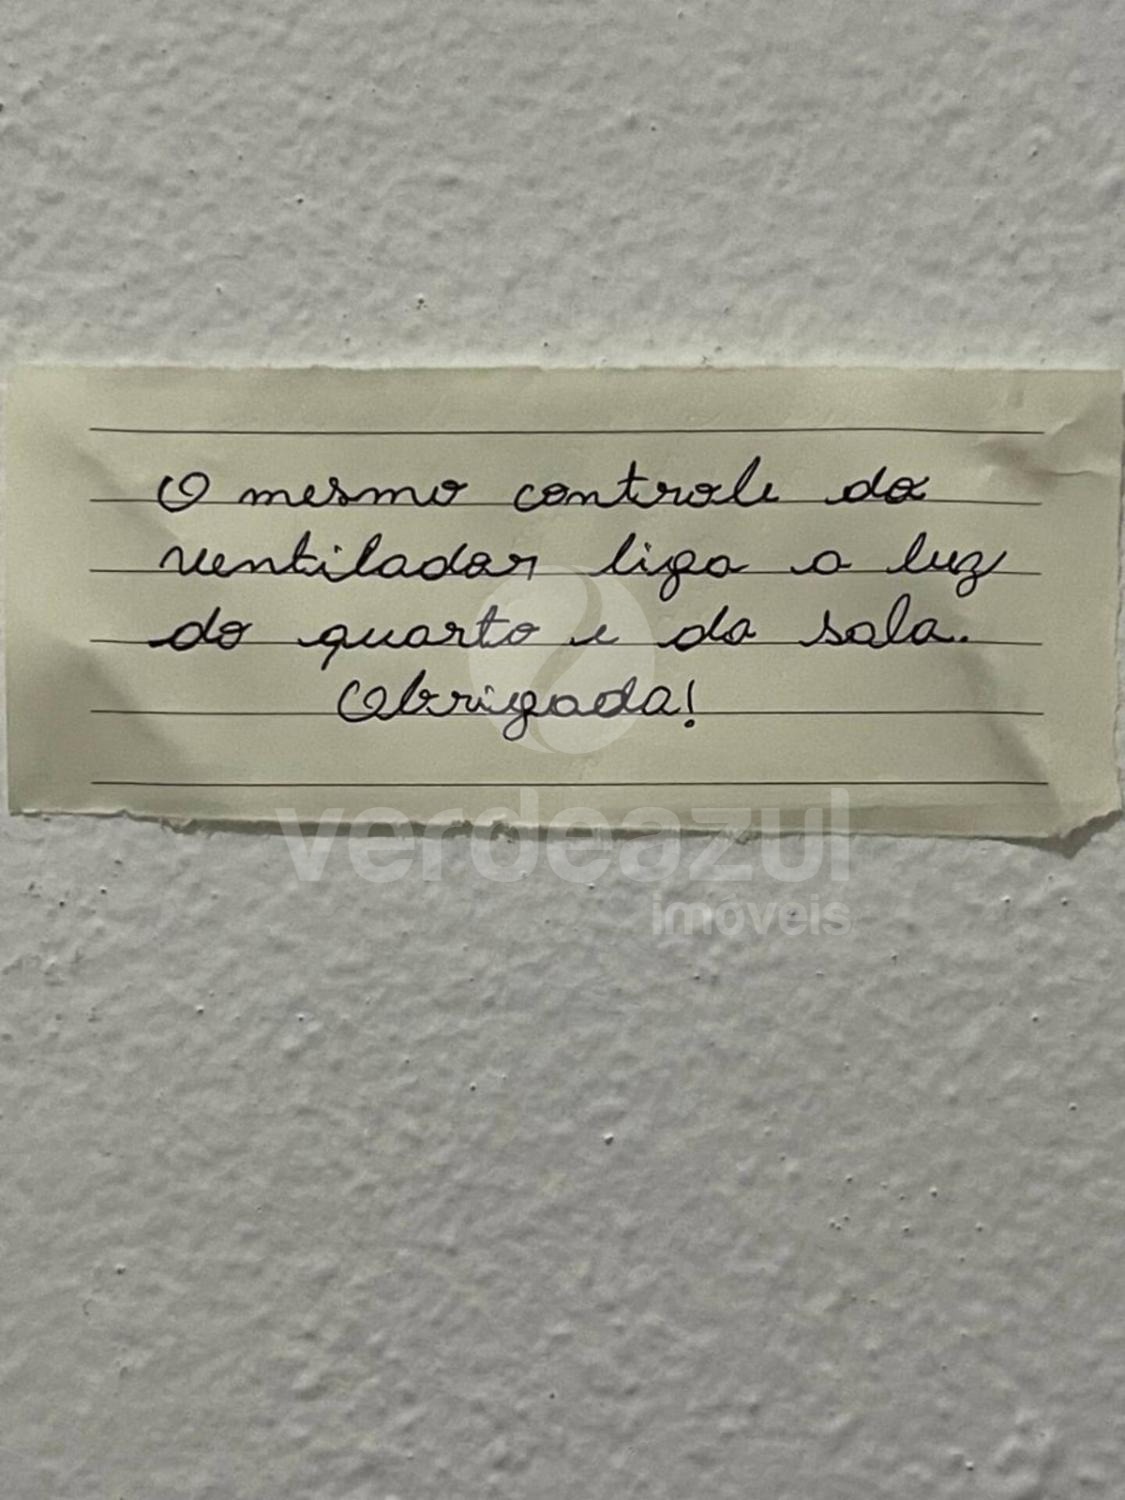 O mesmo controle do
ventilador liga a luz
do quarto e da sala.
Obrigada!
verdeazul
imóveis